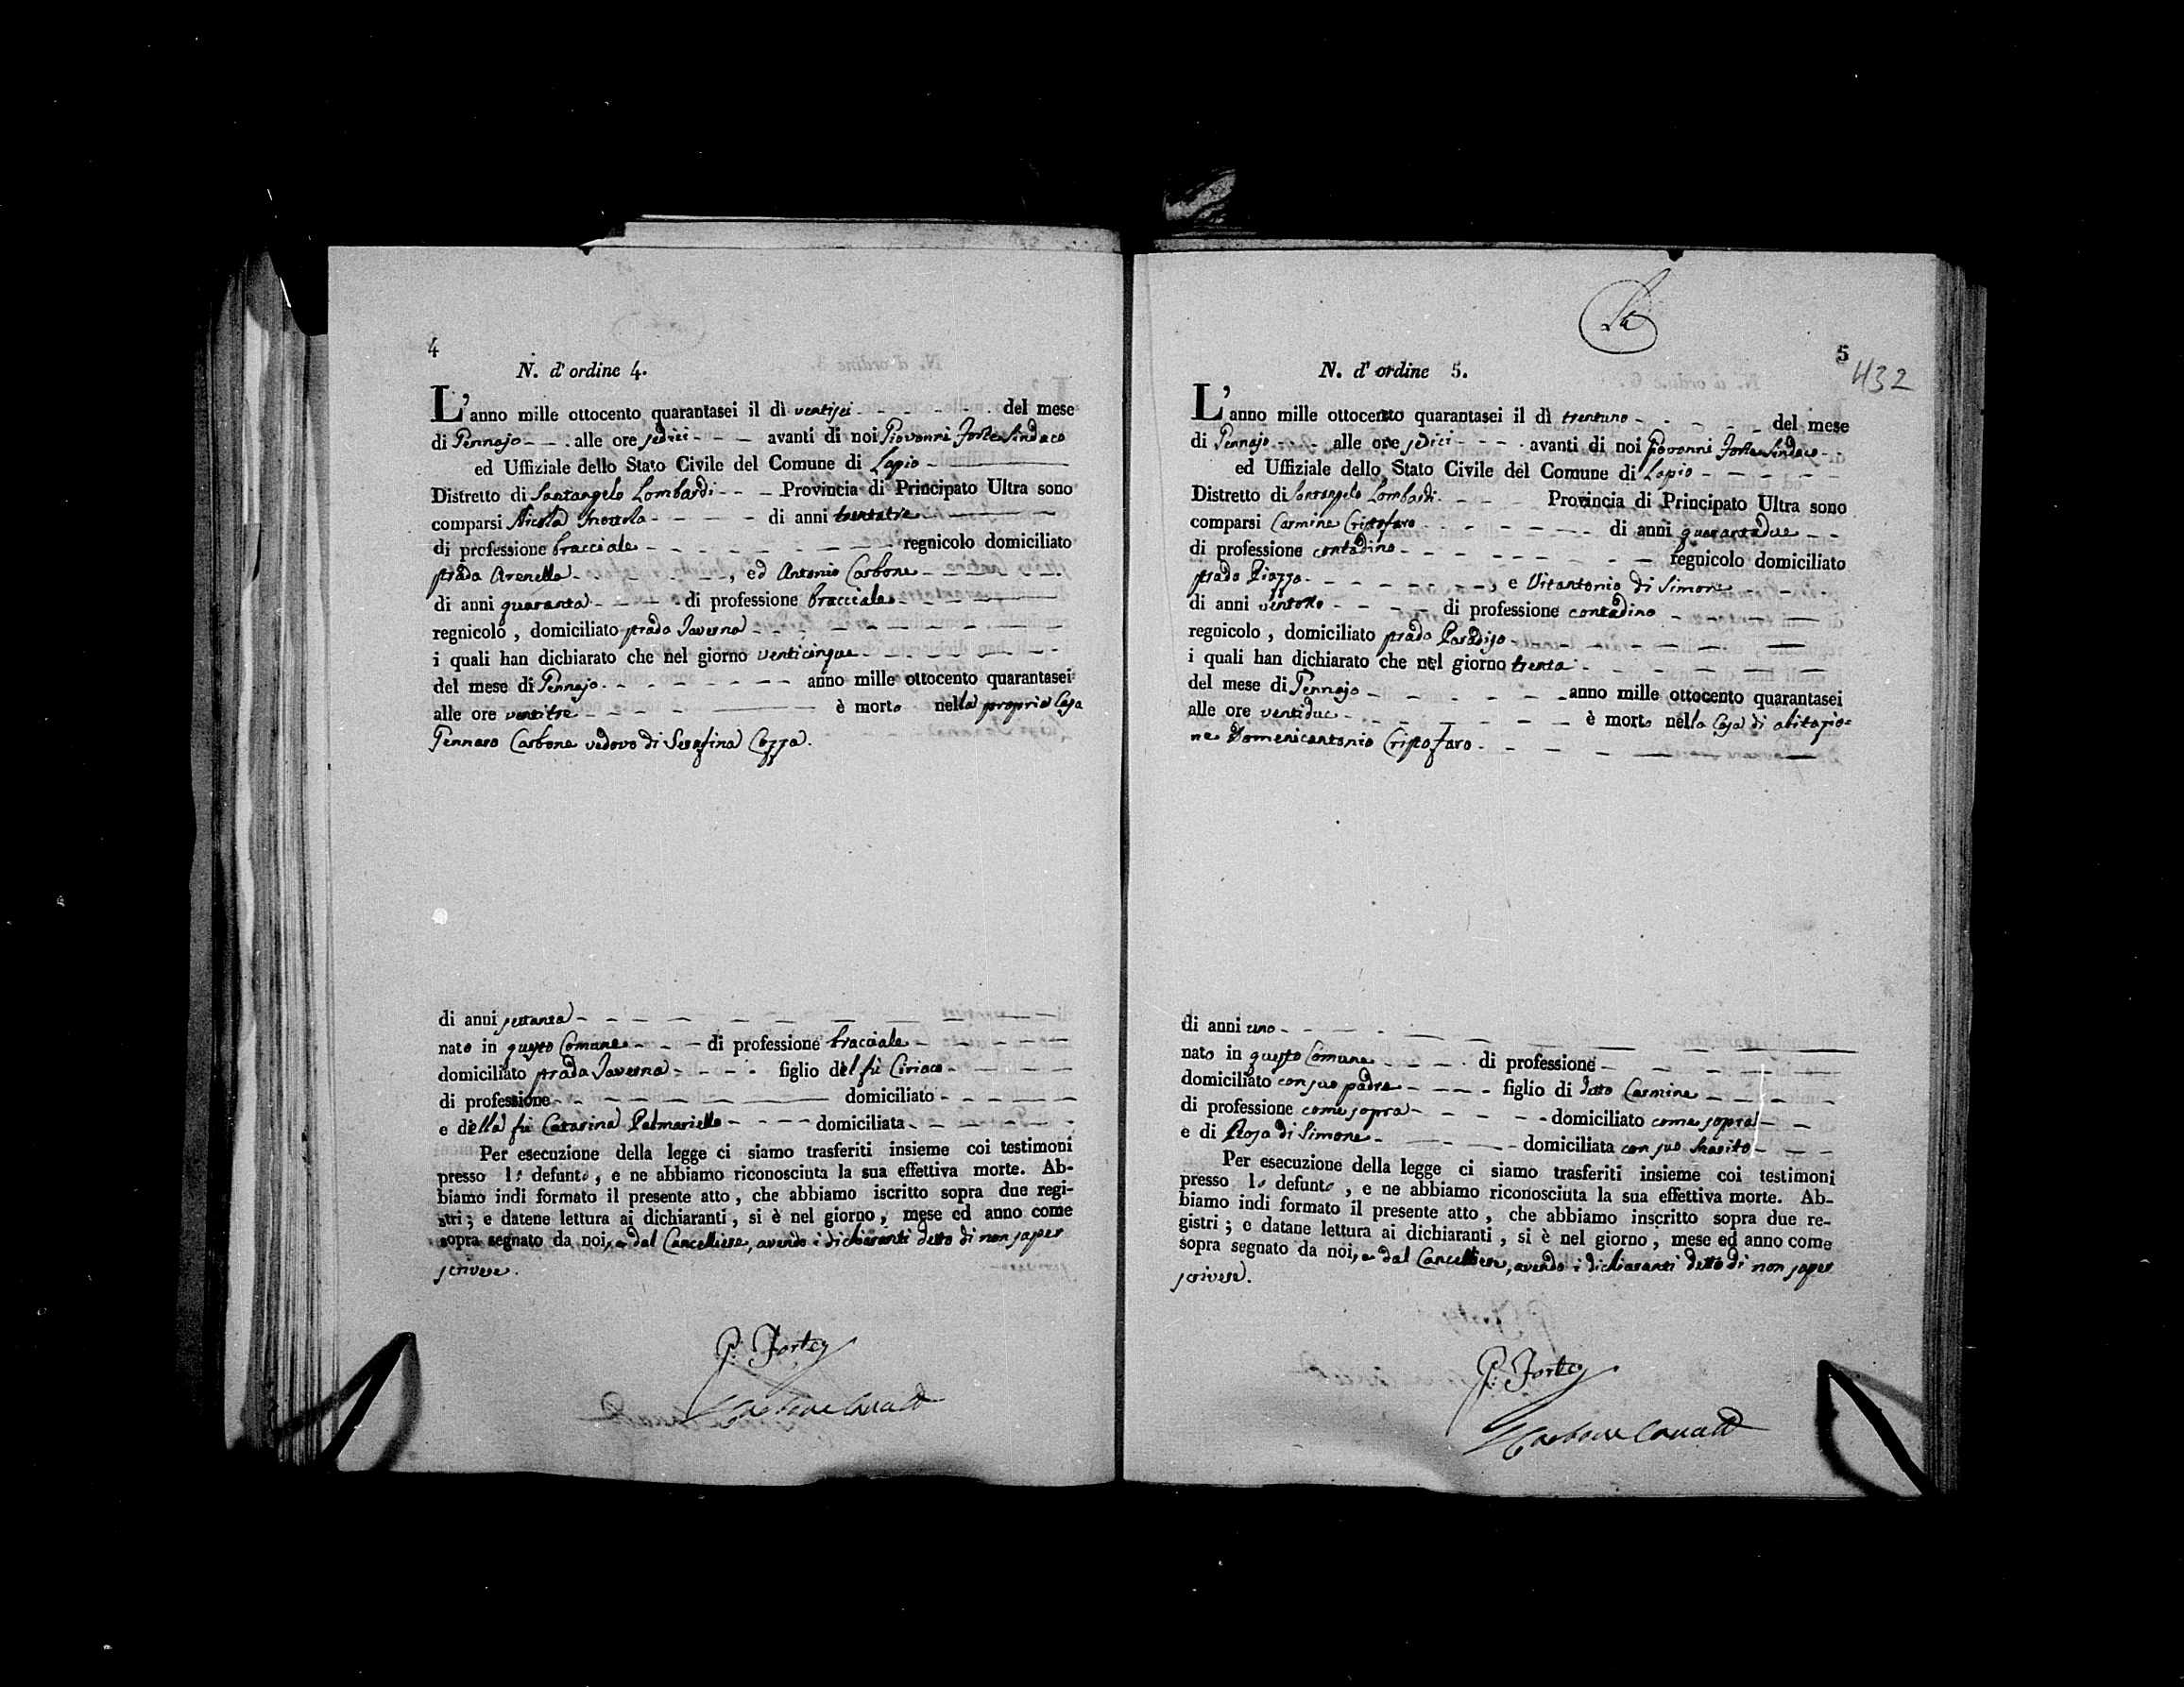 4
N. d'ordine 4.
L'anno mille ottocento quarantasei il dì ventisei del mese
di Gennajo alle ore sedici avanti di noi Giovanni Forte Sindaco
ed Uffiziale dello Stato Civile del Comune di Lapio
Distretto di Santangelo Lombardi Provincia di Principato Ultra sono
comparsi Nicola di anni trentatre
di professione bracciale regnicolo domiciliato
strada Arenella, ed Antonio Carbone
di anni quaranta di professione bracciale
regnicolo, domiciliato strada Taverna
i quali han dichiarato che nel giorno venticinque
del mese di Gennajo anno mille ottocento quarantasei
alle ore ventitre è morto nella propria Casa
Gennaro Carbone vedovo di Serafina Cozza.
di anni settanta
nato in questo Comune di professione bracciale
domiciliato strada Taverna figlio del fù Ciriaco
di professione domiciliato
e della fù Catarina Palmariello domiciliata
Per esecuzione della legge ci siamo trasferiti insieme coi testimoni
presso lo defunto, e ne abbiamo riconosciuta la sua effettiva morte. Ab-
biamo indi formato il presente atto, che abbiamo iscritto sopra due regi-
stri; e datene lettura ai dichiaranti, si è nel giorno, mese ed anno come
sopra segnato da noi, e dal Cancelliere, avendo i dichiaranti detto di non saper
scrivere.
G. Forte
5
432
N. d'ordine 5.
L'anno mille ottocento quarantasei il dì trentuno del mese
di Gennajo alle ore sedici avanti di noi Giovanni Forte Sindaco
ed Uffiziale dello Stato Civile del Comune di Lapio
Distretto di Santangelo Lombardi Provincia di Principato Ultra sono
comparsi Carmine Cristofaro di anni quarantadue
di professione contadino regnicolo domiciliato
strada Piazza, e Vitantonio di Simone
di anni ventotto di professione contadino
regnicolo, domiciliato strada Paradiso
i quali han dichiarato che nel giorno trenta
del mese di Gennajo anno mille ottocento quarantasei
alle ore ventidue è morto nella Casa di abitazio=
ne Domenicantonio Cristofaro
di anni uno
nato in questo Comune di professione
domiciliato con suo padre figlio di detto Carmine
di professione come sopra domiciliato come sopra
e di Rosa di Simone domiciliata con suo marito
Per esecuzione della legge ci siamo trasferiti insieme coi testimoni
presso lo defunto, e ne abbiamo riconosciuta la sua effettiva morte. Ab-
biamo indi formato il presente atto, che abbiamo inscritto sopra due re-
gistri; e datane lettura ai dichiaranti, si è nel giorno, mese ed anno come
sopra segnato da noi, e dal Cancelliere, avendo i dichiaranti detto di non saper
scrivere.
G. Forte